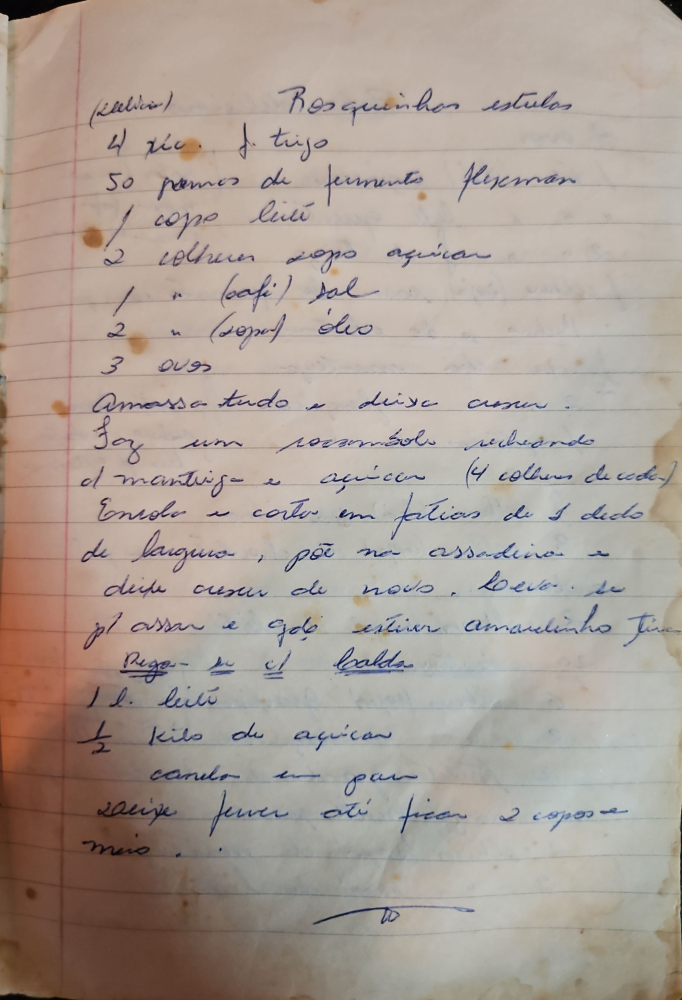 (delícia) Rosquinhas
4 xíc. f. trigo
50 gramas de fermento fleischman
1 copo leite
2 colheres sopa açúcar
1 " (café) sal
2 " (sopa) óleo
3 ovos
Amassa tudo e deixa crescer.
Faz um rocambole recheando
c/ manteiga e açúcar (4 colheres de cada)
Enrola e corta em fatias de 1 dedo
de largura, põe na assadeira e
deixe crescer de novo. Leva-se
p/ assar e qdo estiver amarelinho tira
Rega-se c/ Calda
1 l. leite
1/2 kilo de açúcar
canela em pau
Deixe ferver até ficar 2 copos e
meio . .